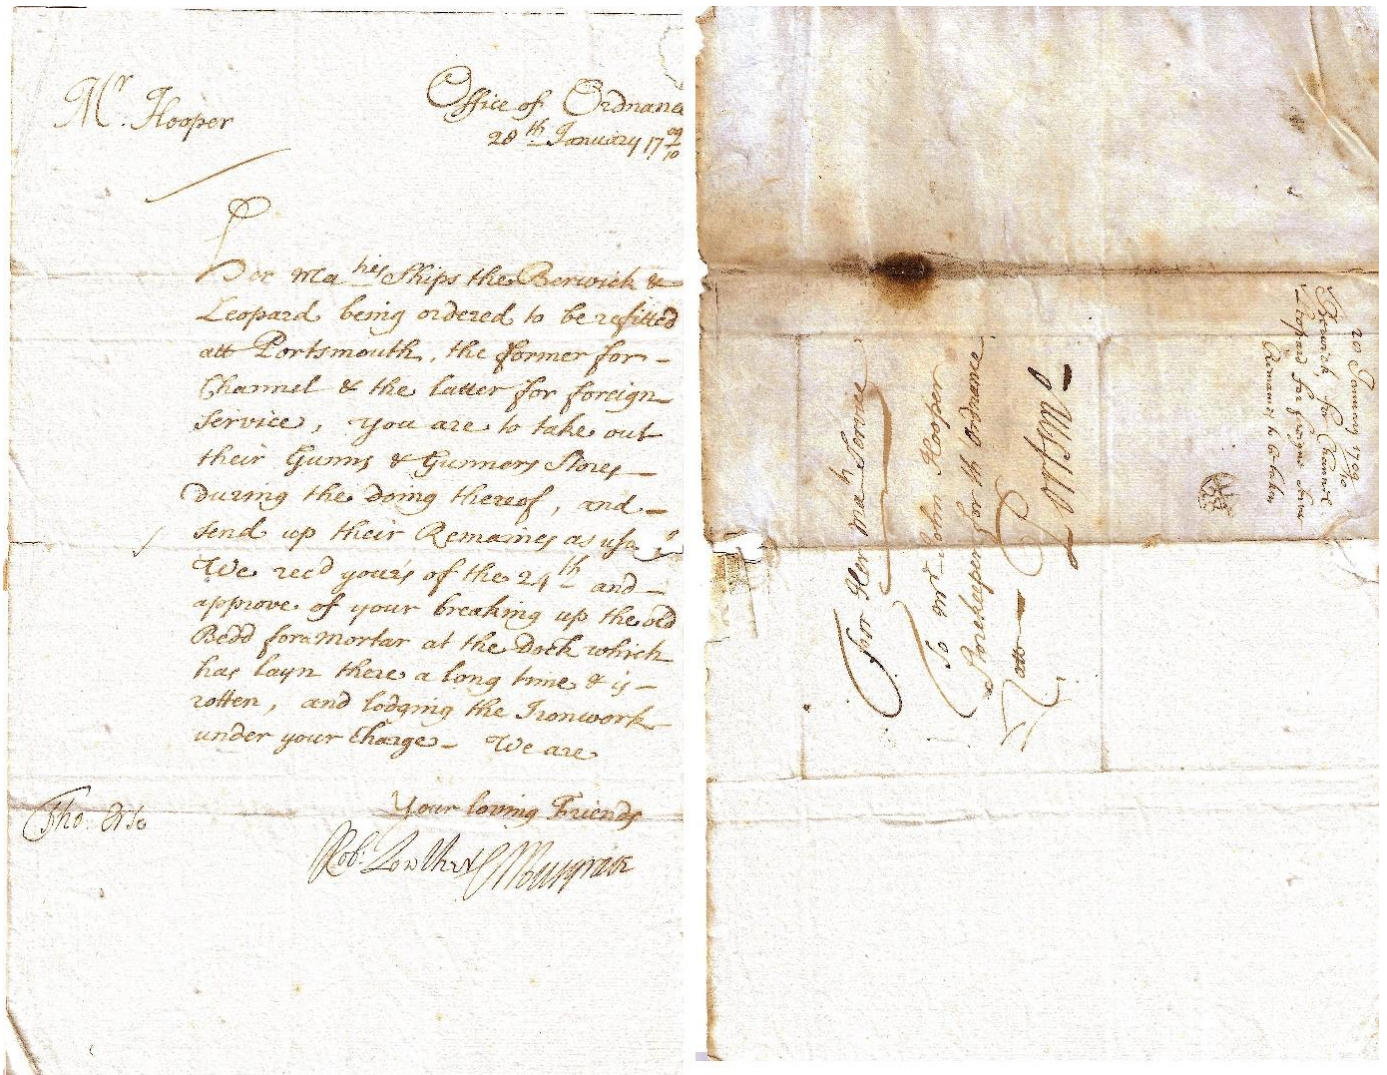 Mr. Hooper
Office of Ordnance
28th January 17 09/10
Her Maties Ships the Berwick &
Leopard being ordered to be refitted
att Portsmouth, the former for
Channel & the latter for foreign
Service, you are to take out
their Gunns & Gunners Stores
during the doing thereof, and
send up their Remaines as
We recd yours of the 24th and
approve of your breaking up the old
Bedd for a mortar at the Dock which
has layn there a long time & is
rotten, and lodging the Ironwork
under your Charge - We are
Your loving Friends
Rob: Lowther Musgrave
Tho:
For Her Mats Service
To Mr John Hooper
Storekeeper for th Ordnance
att
Portsmo
28 January 1709/10
Berwick for Channel
Leopard for foreigne
Remains to be taken